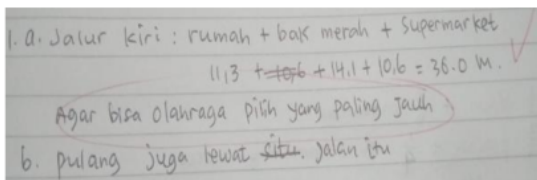 1. a. Jalur kiri : rumah + bak merah + Supermarket
11,3 + 10,6 + 14,1 + 10,6 = 36.0 m.
Agar bisa olahraga pilih yang paling jauh
b. pulang juga lewat situ. jalan itu